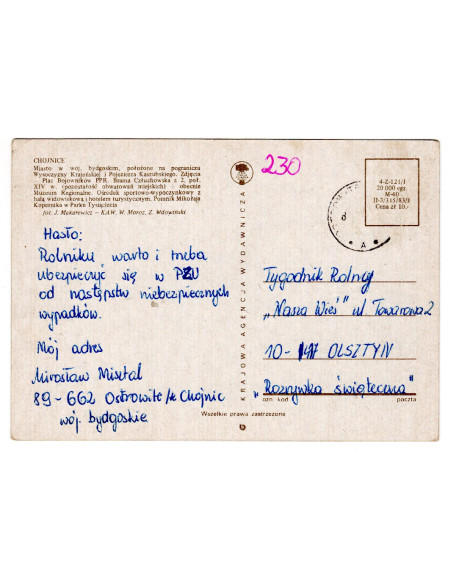 CHOJNICE
Miasto w woj. bydgoskim, położone na pograniczu
Wysoczyzny Krajeńskiej i Pojezierza Kaszubskiego. Zdjęcia
- Plac Bojowników PPR. Brama Człuchowska z 2. poł.
XIV w. (pozostałość obwarowań miejskich) - obecnie
Muzeum Regionalne. Ośrodek sportowo-wypoczynkowy z
halą widowiskową i hotelem turystycznym. Pomnik Mikołaja
Kopernika w Parku Tysiąclecia
fot. J. Makarewicz - KAW, W. Moroz, Z. Wdowiński
Hasło:
Rolniku, warto i trzeba
ubezpieczyć się w PZU
od następstw niebezpiecznych
wypadków.
Mój adres
Mirosław Misztal
89-662 Ostrowite /k Chojnic
woj. bydgoskie
KRAJOWA AGENCJA WYDAWNICZA
Wszelkie prawa zastrzeżone
230
4-Z-121/1
20 000 egz.
M-60
Cena zł 10.-
A
Tygodnik Rolniczy
„Nasza Wieś" ul. Towarowa 2
OLSZTYN
„Rozrywka świąteczna"
ozn. kod
poczta